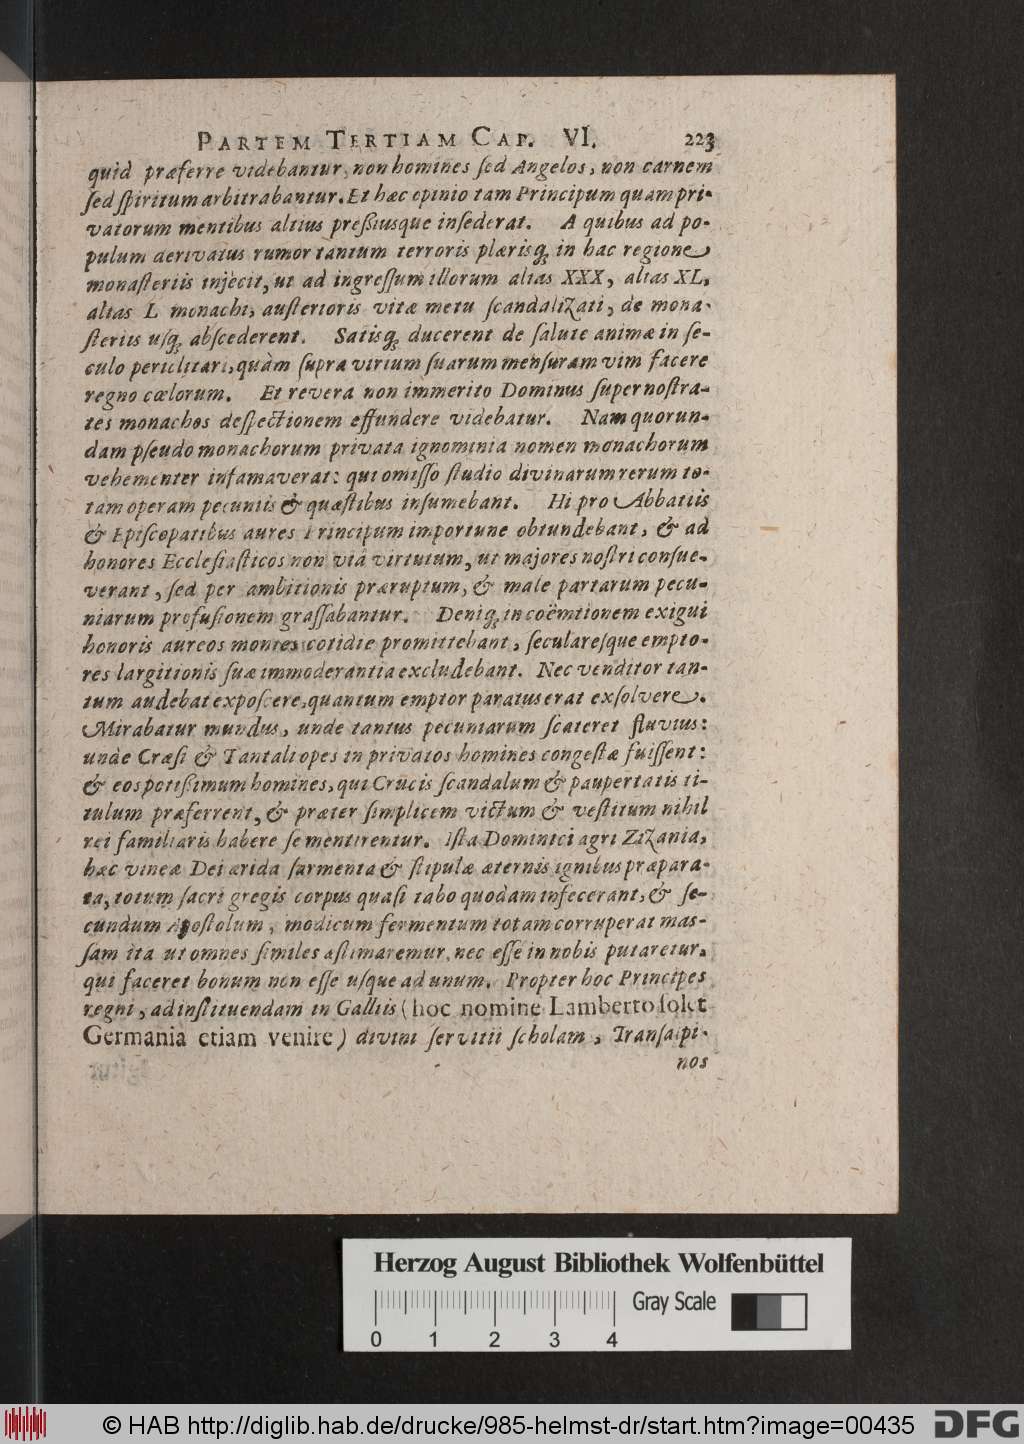 PARTEM TERTIAM CAP. VI. 223
quid præferre videbantur, non homines sed Angelos, non carnem
sed spiritum arbitrabantur. Et hæc opinio tam Principum quam pri-
vatorum mentibus altius pressiusque insederat. A quibus ad po-
pulum derivatus rumor tantum terroris plærisq; in hac regione
monasteriis injecit, ut ad ingressum illorum alias XXX, alias XL,
alias L monachi, austerioris vitæ metu scandalizati, de mona-
steriis usq; abscederent. Satisq; ducerent de salute animæ in se-
culo periclitari, quàm supra virium suarum mensuram vim facere
regno cœlorum. Et revera non immerito Dominus super nostra-
tes monachos despectionem effundere videbatur. Nam quorun-
dam pseudomonachorum privata ignominia nomen monachorum
vehementer infamaverat: qui omisso studio divinarum rerum to-
tam operam pecuniis & quæstibus insumebant. Hi pro Abbatiis
& Episcopatibus aures Principum importune obtundebant, & ad
honores Ecclesiasticos non viâ virtutum, ut majores nostri consue-
verant, sed per ambitionis præruptum, & male partarum pecu-
niarum profusionem grassabantur. Deniq; in coëmtionem exigui
honoris aureos montes cotidie promittebant, secularesque empto-
res largitionis suæ immoderantia excludebant. Nec venditor tan-
tum audebat exposcere, quantum emptor paratus erat exsolvere.
Mirabatur mundus, unde tantus pecuniarum scateret fluvius:
unde Cræsi & Tantali opes in privatos homines congestæ fuissent:
& eos potissimum homines, qui Crucis scandalum & paupertatis ti-
tulum præferrent, & præter simplicem victum & vestitum nihil
rei familiaris habere se mentirentur. Ista Dominici agri Zizania,
hæc vineæ Dei arida sarmenta & stipulæ æternis ignibus præpara-
ta, totum sacri gregis corpus quasi tabo quodam infecerant, & se-
cundum Apostolum, modicum fermentum totam corruperat mas-
sam ita ut omnes similes æstimaremur, nec esse in nobis putaretur,
qui faceret bonum non esse usque ad unum. Propter hoc Principes
regni, ad instituendam in Galliis (hoc nomine Lamberto solet
Germania etiam venire) divini servitii scholam, Transalpi-
nos
Herzog August Bibliothek Wolfenbüttel
Gray Scale
0 1 2 3 4
© HAB http://diglib.hab.de/drucke/985-helmst-dr/start.htm?image=00435
DFG